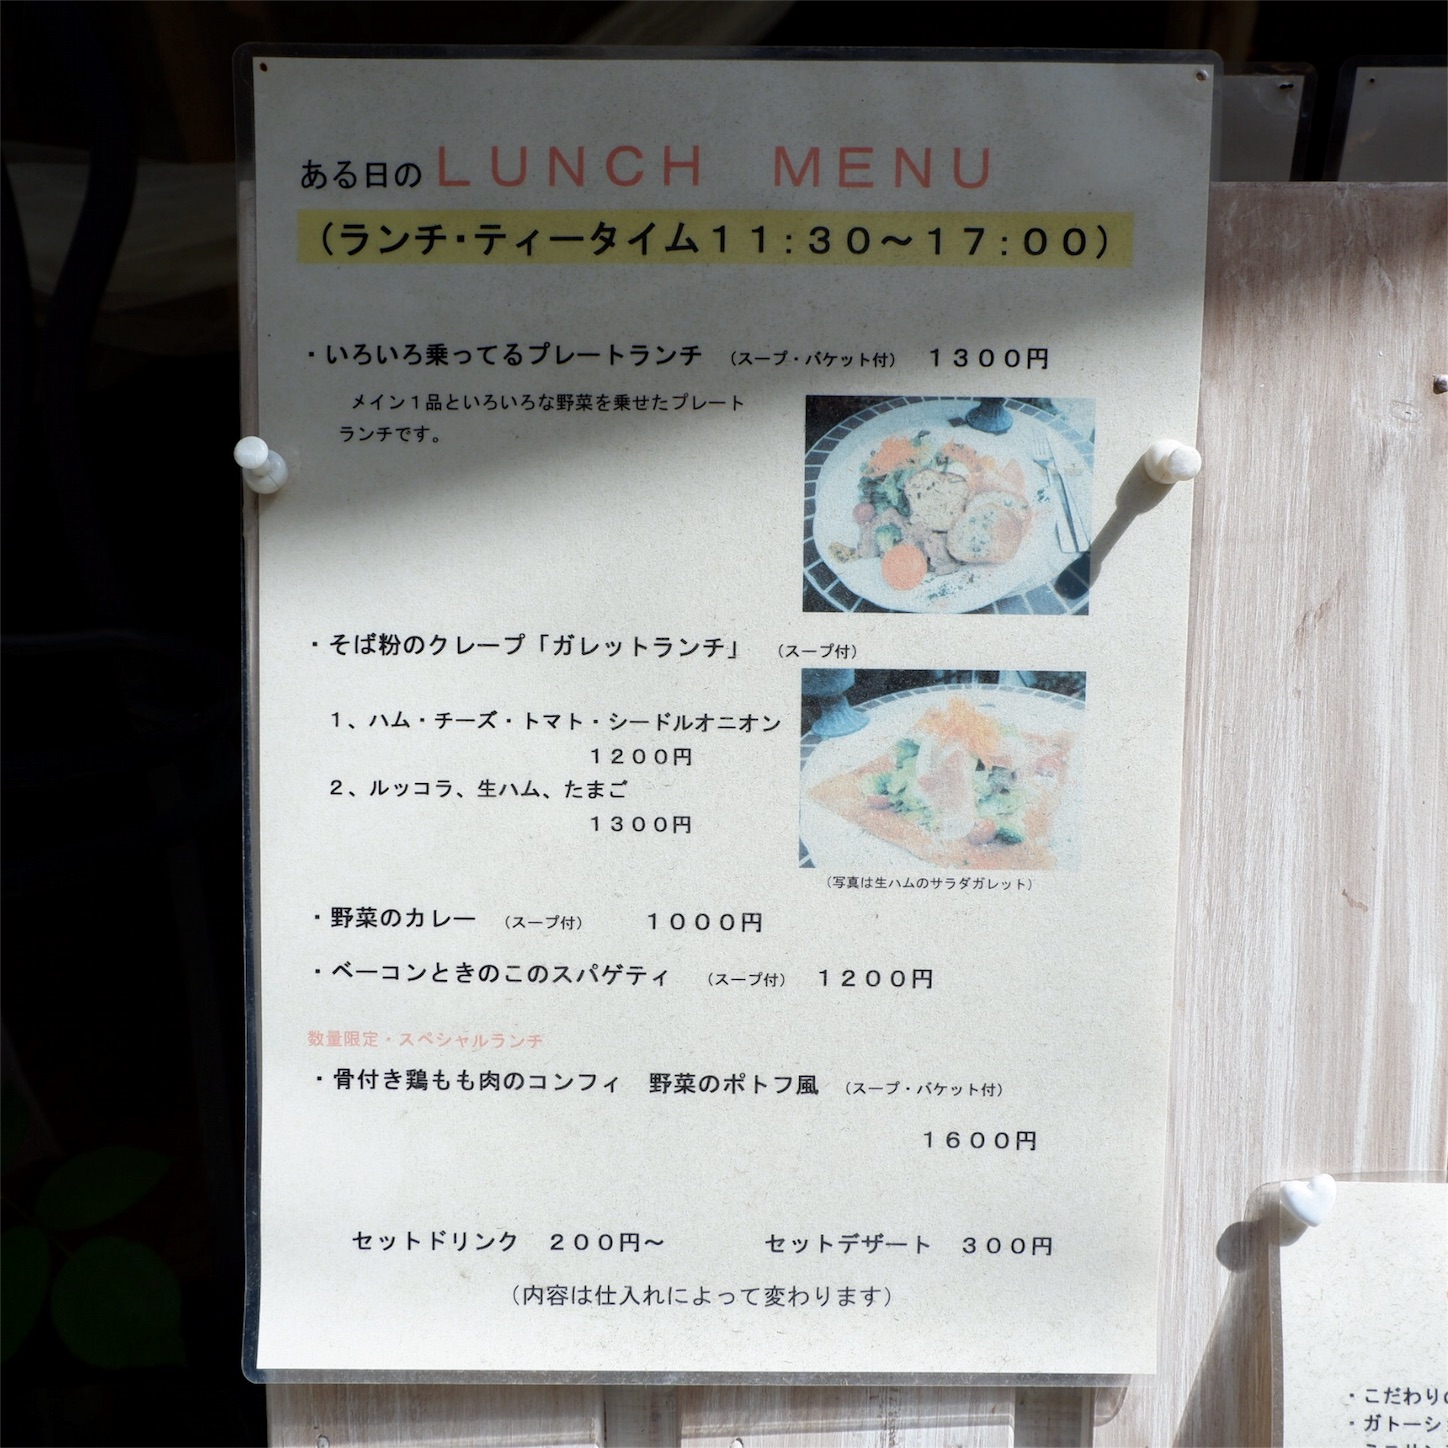 ある日のＬＵＮＣＨ　ＭＥＮＵ
（ランチ・ティータイム１１：３０～１７：００）
・いろいろ乗ってるプレートランチ　（スープ・バケット付）　１３００円
メイン１品といろいろな野菜を乗せたプレート
ランチです。
・そば粉のクレープ「ガレットランチ」　（スープ付）
１、ハム・チーズ・トマト・シードルオニオン
１２００円
２、ルッコラ、生ハム、たまご
１３００円
（写真は生ハムのサラダガレット）
・野菜のカレー　（スープ付）　１０００円
・ベーコンときのこのスパゲティ　（スープ付）　１２００円
数量限定・スペシャルランチ
・骨付き鶏もも肉のコンフィ　野菜のポトフ風　（スープ・バケット付）
１６００円
セットドリンク　２００円～　セットデザート　３００円
（内容は仕入れによって変わります）
・こだわり
・ガトーシ